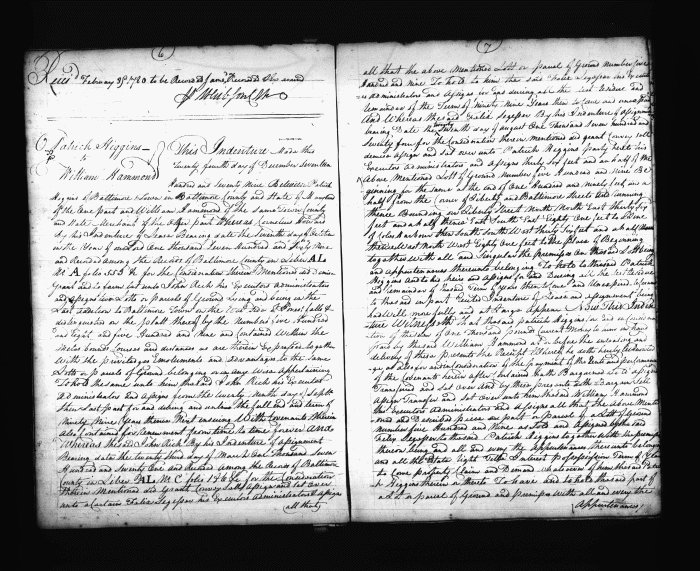 (6)
Rec'd February 25th 1780 to be Recorded Same day Recorded & Examined
Patrick Higgins
to
William Hammond
This Indenture Made this
Twenty fourth day of December Seventeen
Hundred and Seventy Nine Between Patrick
Higgins of Baltimore Town in Baltimore County and State of Maryland
of the One part and William Hammond of the same Town County
and State Merchant of the Other part Whereas Cornelius Howard
by his Indenture of Lease Bearing date the Seventh day of October
in the Year of our Lord One thousand Seven Hundred and Sixty Nine
and Recorded among the Records of Baltimore County in Liber AL
No A folio 555 &c for the Consideration therein Mentioned did Demise
Grant and to farm Let unto John Rick his Executors administrators
and assigns two Lotts or parcels of Ground Lying and being in the
Last addition to Baltimore Town
distinguished on the platt thereof by the Number five Hundred
and Eight and five Hundred and Nine and Contained within the
metes bounds Courses and distances as are therein Expressed together
With the priviledges Emoluments and advantages to the same
Lotts or parcels of Ground belonging or in any wise appertaining
To hold the same unto him the said John Rick his Executors
administrators and assigns from the Twenty Ninth day of Septr
then Last past for and during and untill the full end and term of
Ninety Nine Years thence Next ensuing With Covenants therein
also Contained for Renewment from time to time forever And
Whereas the said John Rick by his Indenture of assignment
Bearing date the twenty third day of March One Thousand Seven
Hundred and Seventy One and Recorded among the Records of Baltimore
County in Liber AL No C folio for the Consideration
therein Mentioned did Grant Convey Assign and Set over
unto a Certain his Executors administrators & assigns
all that
(7)
all that the above Mentioned Lott or parcel of Ground Number five
Hundred and Nine To hold to him the said his Executors
administrators and assigns for and during all the rest residue and
remainder of the Term of Ninety Nine Years then to Come and unexpired
And Whereas the said by his Indenture of assignment
bearing Date the Twentieth day of August One Thousand Seven Hundred and
Seventy four for the Consideration therein mentioned did grant Convey sell
demise assign and set over unto Patrick Higgins party hereto his
Executors administrators and assigns thirty Six feet and an half of the
Above Mentioned Lott of Ground Number five Hundred and Nine Be
ginning for the same at the end of One Hundred and Ninety feet and a
half from the Corner of Liberty and Baltimore Streets and running
thence Bounding on Liberty Street North North East thirty Six
feet and an half thence East South East Eighty One feet to a
thence South South West thirty Six feet and a half
thence West North West Eighty One feet to the Place of Beginning
together with all and Singular the premises thereunto Belonging
and appurtenances thereunto belonging To Hold to the said Patrick
Higgins and to his heirs and assigns for and During all the rest Residue
and Remainder of the said Term of Years then to Come and Unexpired
to the said in part Recited Indenture of Lease and assignment being
had Will more fully and at Large Appear Now This Inden
ture Witnesseth That the said Patrick Higgins for and in Considera
tion of the Sum of One Thousand Pounds Current Money to him in Hand
paid by the said William Hammond at or before the sealing and
delivery of these presents the Receipt Whereof he doth hereby Acknowled
ge as also for and in Consideration of the payment of the Rents and performance
of the Covenants herein after Contained hath Bargained sold assigned
Transferred and Set over And by these presents doth Bargain Sell
Assign Transfer and Set over unto him the said William Hammond
his Executors administrators and assigns all that the above Mentio
ned and Described piece or parcel of a Lott of Ground
Number five Hundred and Nine as sold and assigned by the said
to the said Patrick Higgins together with the Improvements
thereon being and all and every the Appurtenances thereunto belonging
and all the Estate Right Title Interest Possession Term of Years
to Come property Claim and Demand whatsoever of him the said Patri
ck Higgins therein or thereto To have and to hold the said part of
a Lot or parcel of Ground and premises with all and every the
Appurtenances